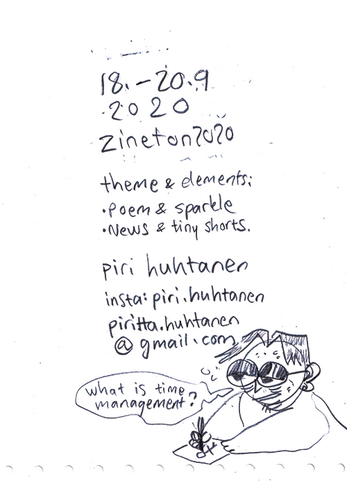 18.-20.9
.2020
zineton2020
theme & elements:
•Poem & sparkle
•News & tiny shorts.
piri huhtanen
insta: piri.huhtanen
piritta.huhtanen
@gmail.com
what is time
management?